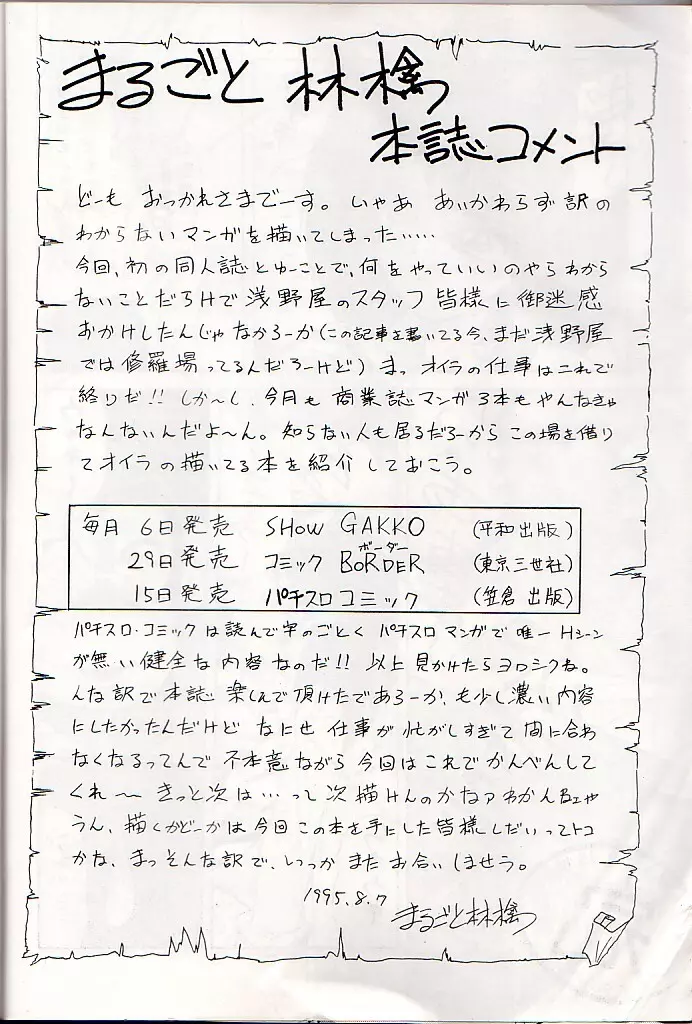 まるごと 林檎っ
本誌コメント
どーも おっかれさまでーす。いやあ あいかわらず 訳の
わからないマンガを描いてしまった……
今回、初の同人誌とゆーことで、何をやっていいのやらわから
ないことだらけで浅野屋のスタッフ皆様に御迷惑
おかけしたんじゃなかろーか(この記事を書いてる今、まだ浅野屋
では修羅場ってるんだろーけど)まっ オイラの仕事はこれで
終りだ!! しか〜し、今月も 商業誌マンガ 3本もやんなきゃ
なんないんだよ〜ん。知らない人も居るだろーから この場を借り
てオイラの描いてる本を紹介しておこう。
毎月 6日発売 SHOW GAKKO (平和出版)
ボーダー
29日発売 コミック BoRDER (東京三世社)
15日発売 パチスロコミック (笠倉出版)
パチスロ・コミックは読んで字のごとく パチスロマンガで唯一Hシーン
が無い健全な内容なのだ!! 以上見かけたらヨロシクね。
んな訳で本誌 楽しんで頂けたであろーか、も少し濃い内容
にしたかったんだけど なにせ 仕事が忙がしすぎて 間に合わ
なくなるってんで 不本意ながら 今回はこれでかんべんして
くれ〜 きっと次は…って次描けんのかなァ わかん
うん、描くかどーかは今回この本を手にした皆様しだいってトコ
かな、まっそんな訳で、いつか また お合いしませう。
1995.8.7
まるごと林檎っ